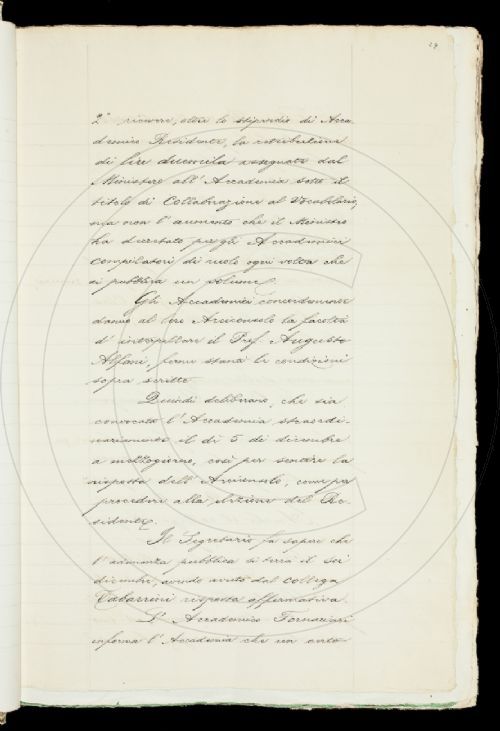 29
2° ricevere, oltre lo stipendio di Acca-
demico Residente, la retribuzione
di lire duemila assegnata dal
Ministero all'Accademia sotto il
titolo di Collaborazione al Vocabolario,
ma non l'aumento che il Ministro
ha decretato per gli Accademici
compilatori di ruolo ogni volta che
si pubblica un volume.
Gli Accademici concordemente
danno al loro Arciconsolo la facoltà
d'interpellare il Prof. Augusto
Alfani, ferme stanti le condizioni
sopra scritte.
Quindi deliberano, che sia
convocata l'Accademia straordi-
nariamente il dì 5 di dicembre
a mezzogiorno, così per sentire la
risposta dell'Arciconsolo, come per
procedere alla elezione del Re-
sidente.
Il Segretario fa sapere che
l'adunanza pubblica si terrà il sei
dicembre, avendo avuto dal collega
Tabarrini risposta affermativa.
L'Accademico Fornaciari
informa l'Accademia che un certo